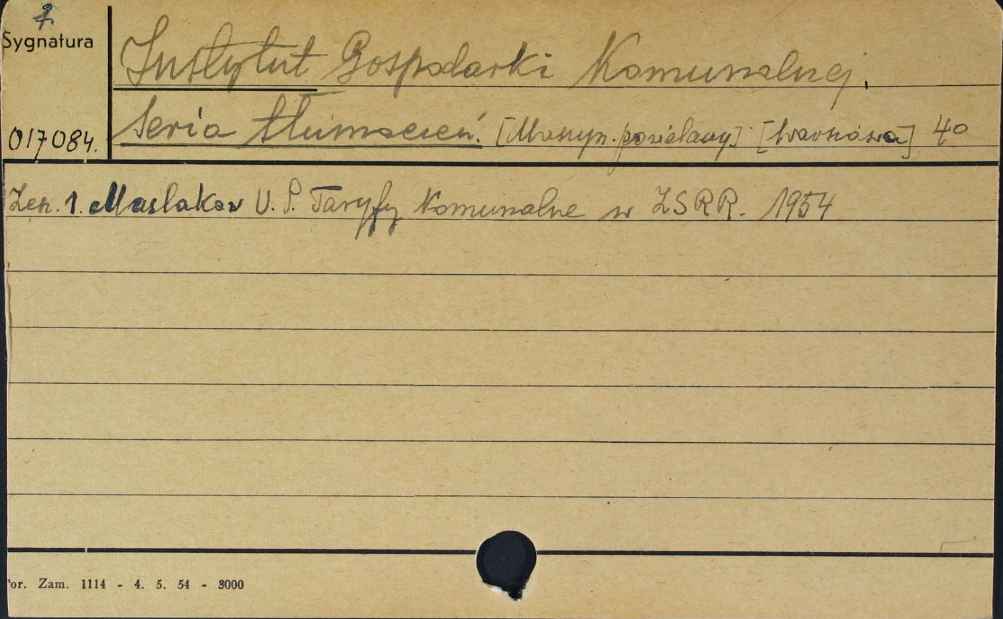 Sygnatura
017084.
Instytut Gospodarki Komunalnej.
Seria tłumaczeń. [Maszyn. powielany] [Warszawa] 4°
Zesz. 1. Maslakow U. P. Taryfy Komunalne w ZSRR. 1954
or. Zam. 1114 - 4. 5. 54 - 3000